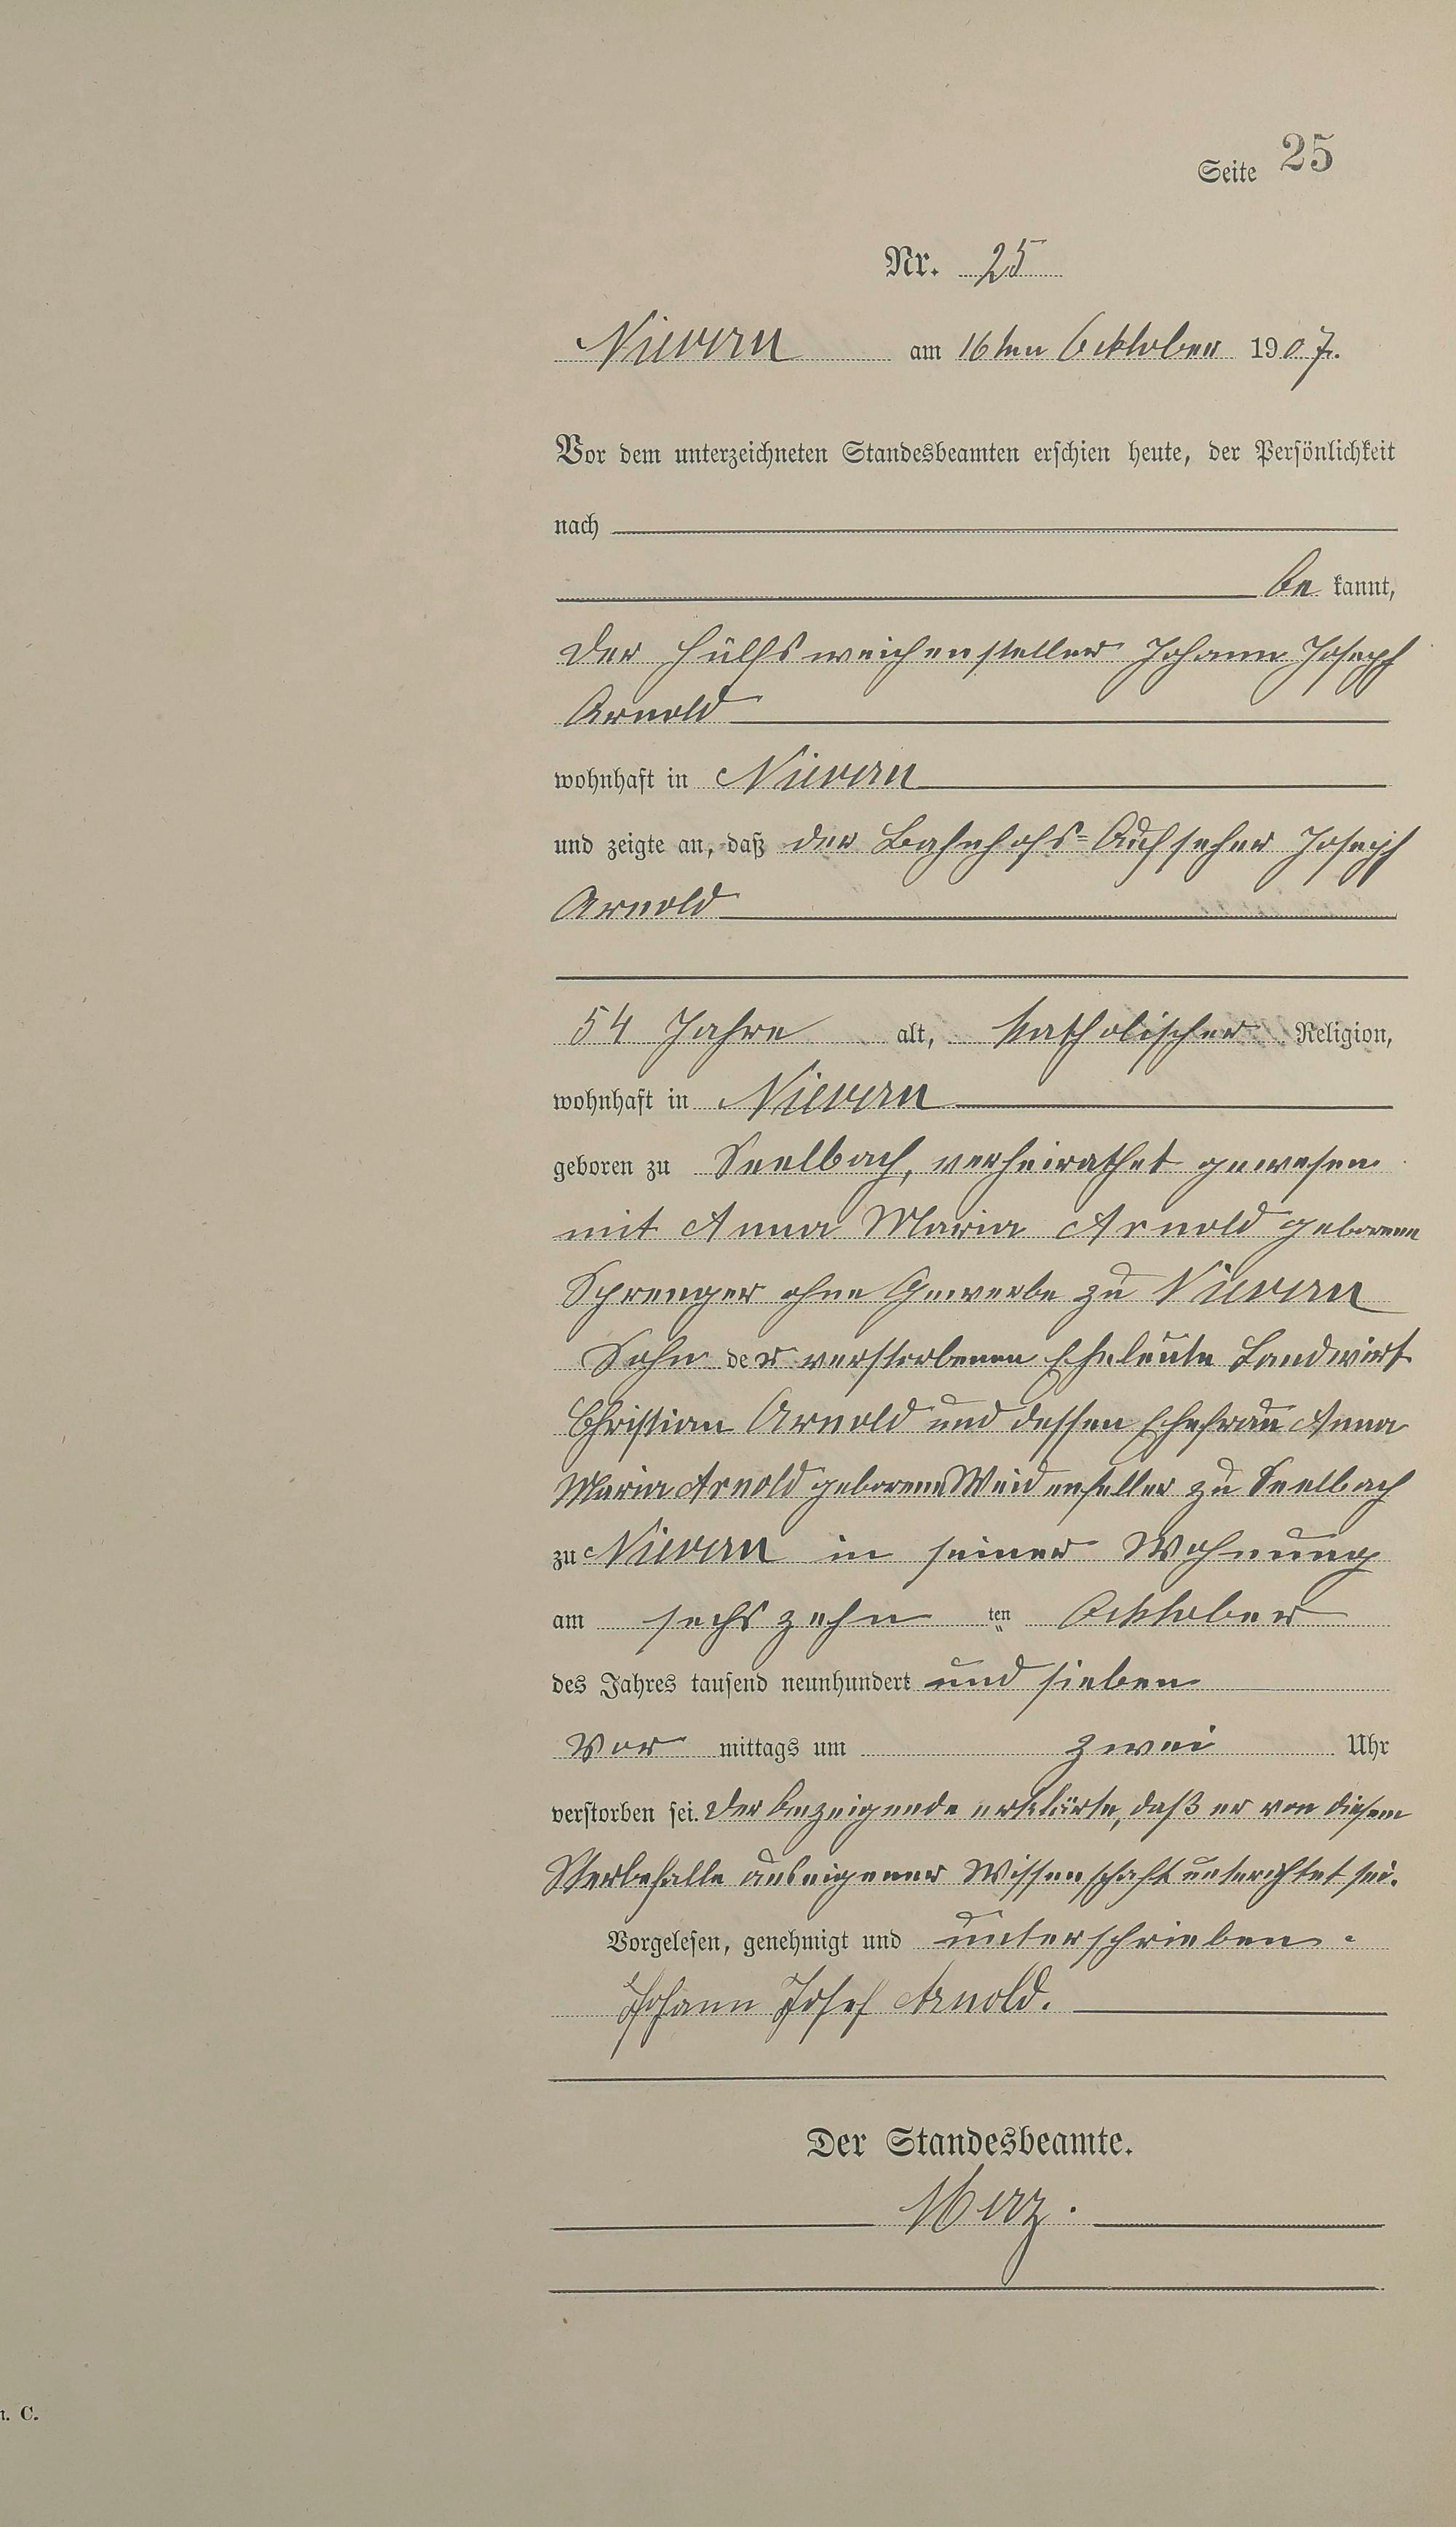 Seite 25
Nr. 25
Nievern am 16ten Ocktober 1907.
Vor dem unterzeichneten Standesbeamten erschien heute, der Persönlichkeit
nach
be kannt,
der Hülfsweichensteller Johann Joseph
Arnold
wohnhaft in Nievern
und zeigte an, daß der Bahnhofs-Aufseher Joseph
Arnold
54 Jahre alt, katholischer Religion,
wohnhaft in Nievern
geboren zu Seelbach, verheirathet gewesen
mit Anna Maria Arnold geborene
Sprenger ohne Gewerbe zu Nievern
Sohn der verstorbenen Eheleute Landwirt
Christian Arnold und dessen Ehefrau Anna
Maria Arnold geborene Weidenfeller zu Seelbach
zu Nievern in seiner Wohnung
am sechszehn ten Ocktober
des Jahres tausend neunhundert und sieben
Vor mittags um zwei Uhr
verstorben sei. Der Anzeigende erklärte, daß er von diesem
Sterbefalle aus eigener Wissenschaft unterichtet sei.
Vorgelesen, genehmigt und unterschrieben.
Johann Josef Arnold.
Der Standesbeamte.
Merz.
. C.